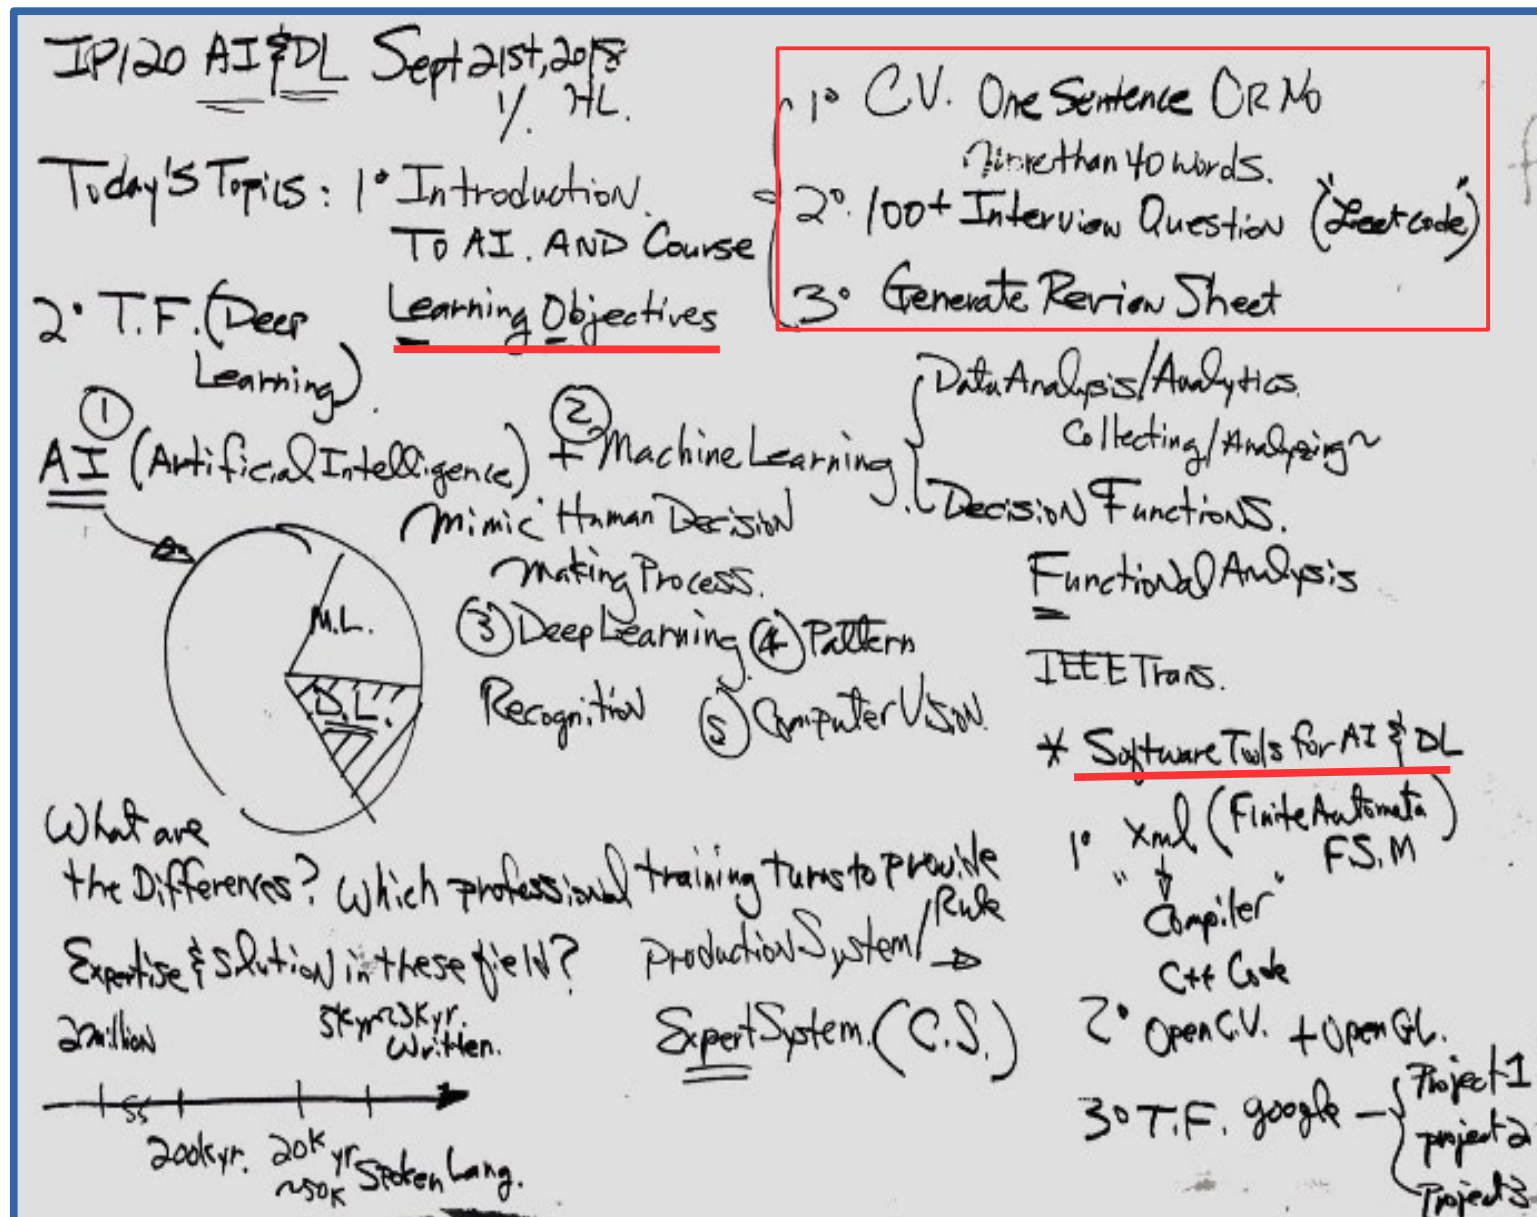 IP120 AI & DL Sept 21st, 2018
1/. HL.
Today's Topics: 1° Introduction.
To AI. AND Course
Learning Objectives
2° T.F. (Deep
Learning).
1° C.V. One Sentence OR No
more than 40 words.
2°. 100+ Interview Question ("Leetcode")
3° Generate Review Sheet
① ②
AI (Artificial Intelligence) + Machine Learning
Mimic Human Decision
Making Process.
Data Analysis/Analytics.
Collecting/Analyzing~
Decision Functions.
Functional Analysis
IEEE Trans.
M.L.
D.L.
③ Deep Learning ④ Pattern
Recognition ⑤ Computer Vision.
* Software Tools for AI & DL
1° Xml (Finite Automata)
F.S.M
"Compiler"
C++ Code
2° OpenC.V. + OpenGL.
3° T.F. google — Project 1
project 2
Project 3
What are
the Differences? Which professional training turns to provide
Expertise & Solution in these field?
Production System/Rule
Expert System. (C.S.)
2million
3Kyr.
Written.
200kyr. 20K yr
~50K
Spoken Lang.